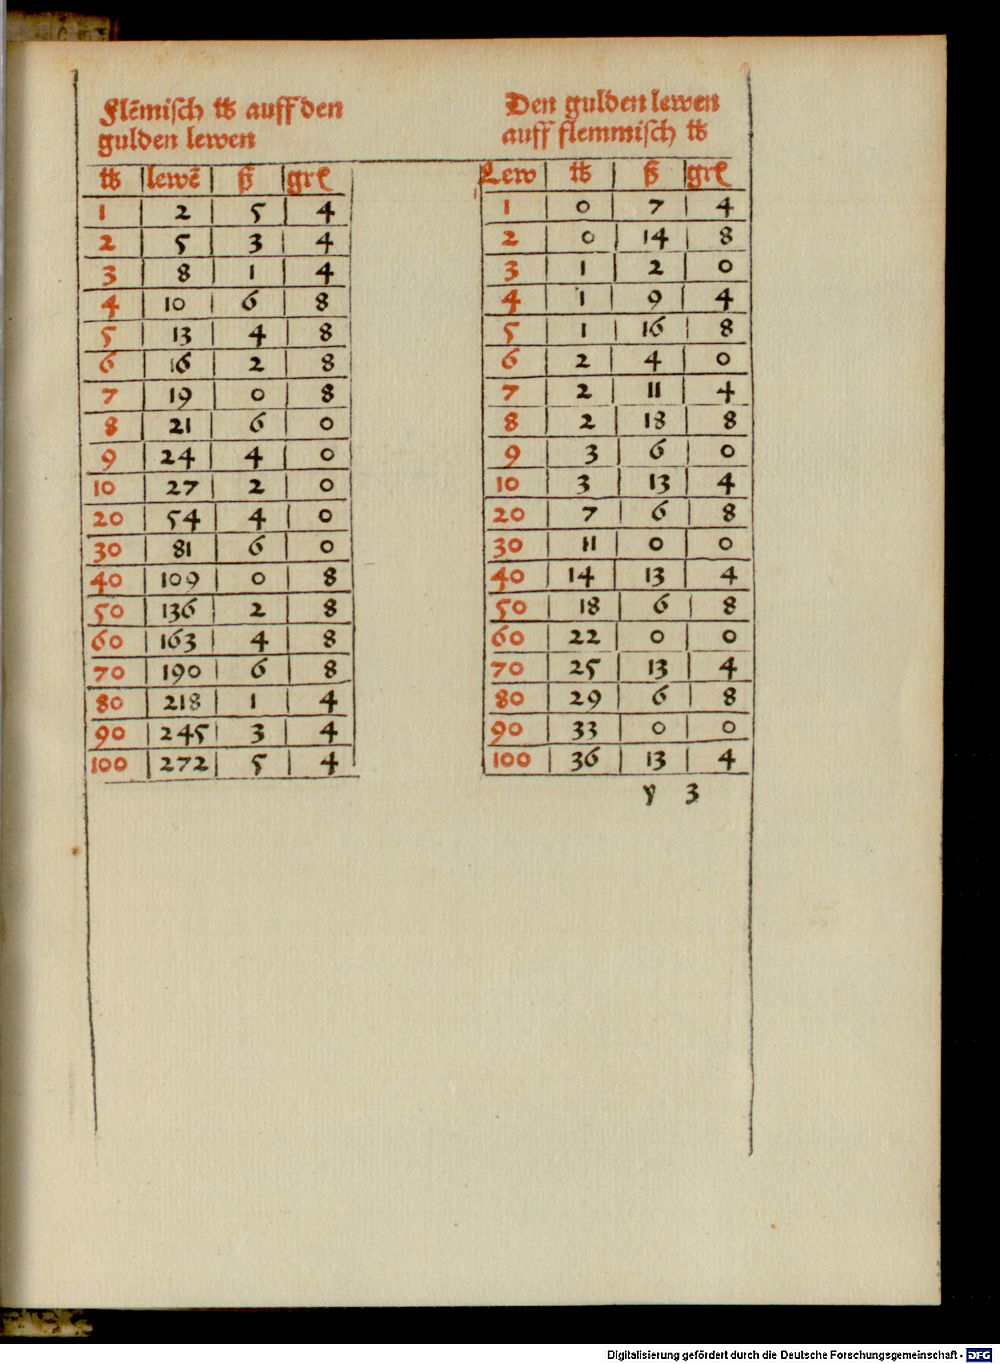 Flēmisch ℔ auff den
gulden lewen
℔ lewē ß grl
1 2 5 4
2 5 3 4
3 8 1 4
4 10 6 8
5 13 4 8
6 16 2 8
7 19 0 8
8 21 6 0
9 24 4 0
10 27 2 0
20 54 4 0
30 81 6 0
40 109 0 8
50 136 2 8
60 163 4 8
70 190 6 8
80 218 1 4
90 245 3 4
100 272 5 4
Den gulden lewen
auff flemmisch ℔
Lew ℔ ß grl
1 0 7 4
2 0 14 8
3 1 2 0
4 1 9 4
5 1 16 8
6 2 4 0
7 2 11 4
8 2 18 8
9 3 6 0
10 3 13 4
20 7 6 8
30 11 0 0
40 14 13 4
50 18 6 8
60 22 0 0
70 25 13 4
80 29 6 8
90 33 0 0
100 36 13 4
y 3
Digitalisierung gefördert durch die Deutsche Forschungsgemeinschaft - DFG